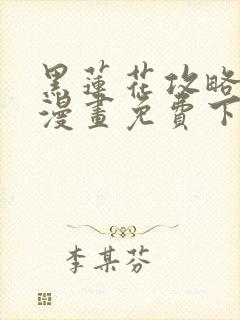 黑蓮花攻略
漫畫免費下
李某芬